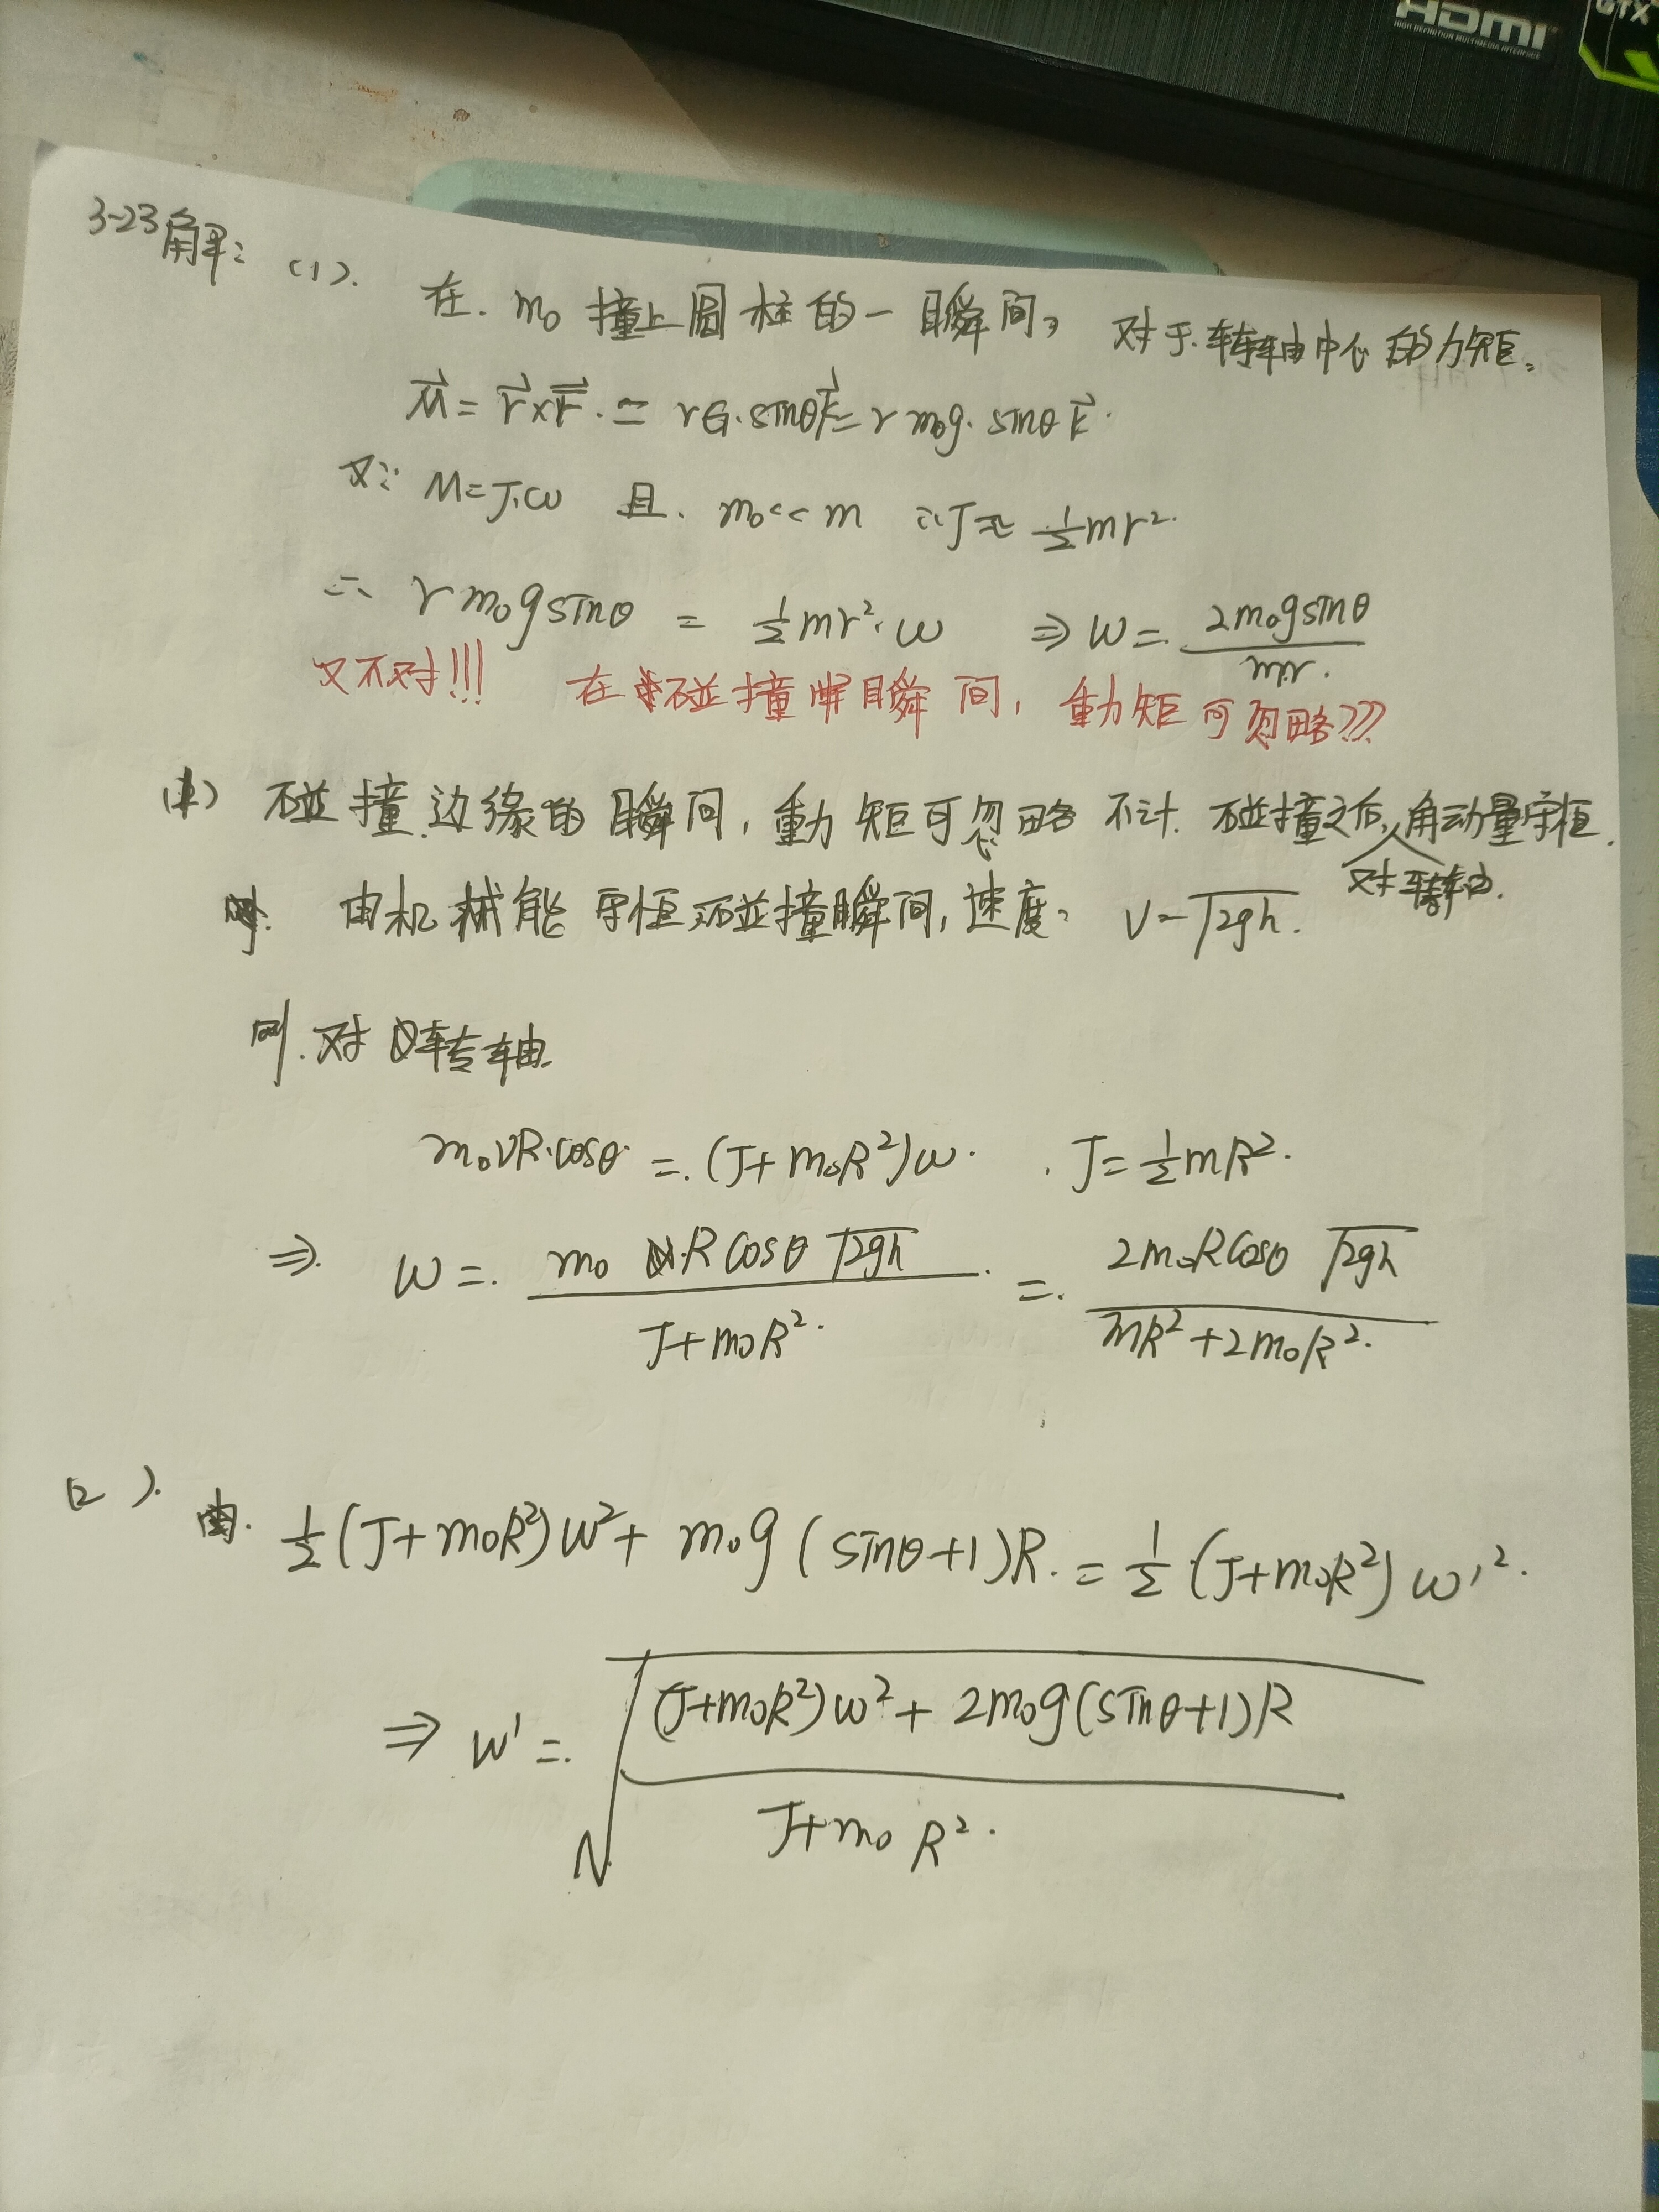 HDMI
HIGH DEFINITION MULTIMEDIA INTERFACE
GTX
3-23 解: (1). 在. m₀ 撞上圆柱的一瞬间, 对于转轴中心的力矩.
M⃗ = r⃗×F⃗. = rG·sinθk⃗ = r m₀g·sinθ k⃗.
又∵ M=J·ω 且. m₀<<m ∴J≈ ½mr².
∴ r m₀g sinθ = ½mr²·ω ⇒ ω = 2m₀gsinθ / mr.
又不对!!! 在碰撞瞬间, 重力矩可忽略???
(1) 碰撞边缘的瞬间, 重力矩可忽略不计. 碰撞之后, 对转轴. 角动量守恒.
由机械能守恒碰撞瞬间, 速度: v=√2gh.
则. 对转轴.
m₀vR·cosθ = (J+m₀R²)ω. J=½mR².
⇒ ω = m₀ R cosθ √2gh / J+m₀R². = 2m₀Rcosθ √2gh / mR²+2m₀R².
(2). 由. ½(J+m₀R²)ω²+ m₀g(sinθ+1)R. = ½(J+m₀R²)ω'².
⇒ ω' = √(J+m₀R²)ω²+ 2m₀g(sinθ+1)R / J+m₀R².